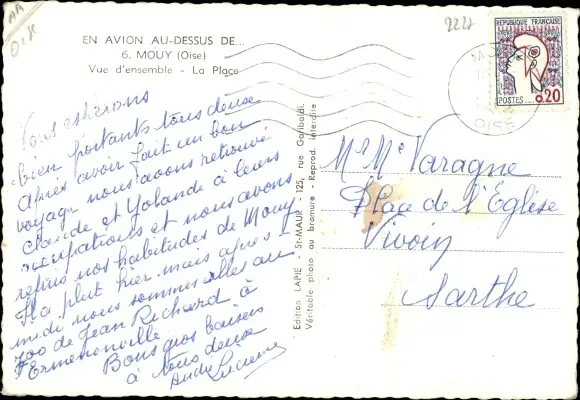 AA
OIR
2227
EN AVION AU-DESSUS DE...
6. MOUY (Oise)
Vue d'ensemble - La Place
Vous espérons
bien portants tous deux
Après avoir fait un bon
voyage nous avons retrouvé
Claude et Yolande à leurs
occupations et nous avons
repris nos habitudes de Mouy
Il a plut hier mais après-
midi nous sommes allés au
zoo de Jean Richard à
Ermenonville.
Bons gros baisers
à tous deux
André Lucienne
Edition LAPIE - St-MAUR - 125, rue Garibaldi.
Véritable photo au bromure - Reprod. interdite
REPUBLIQUE FRANÇAISE
POSTES 0,20
OISE
Mr Me Varagne
Place de l'Eglise
Vivoin
Sarthe